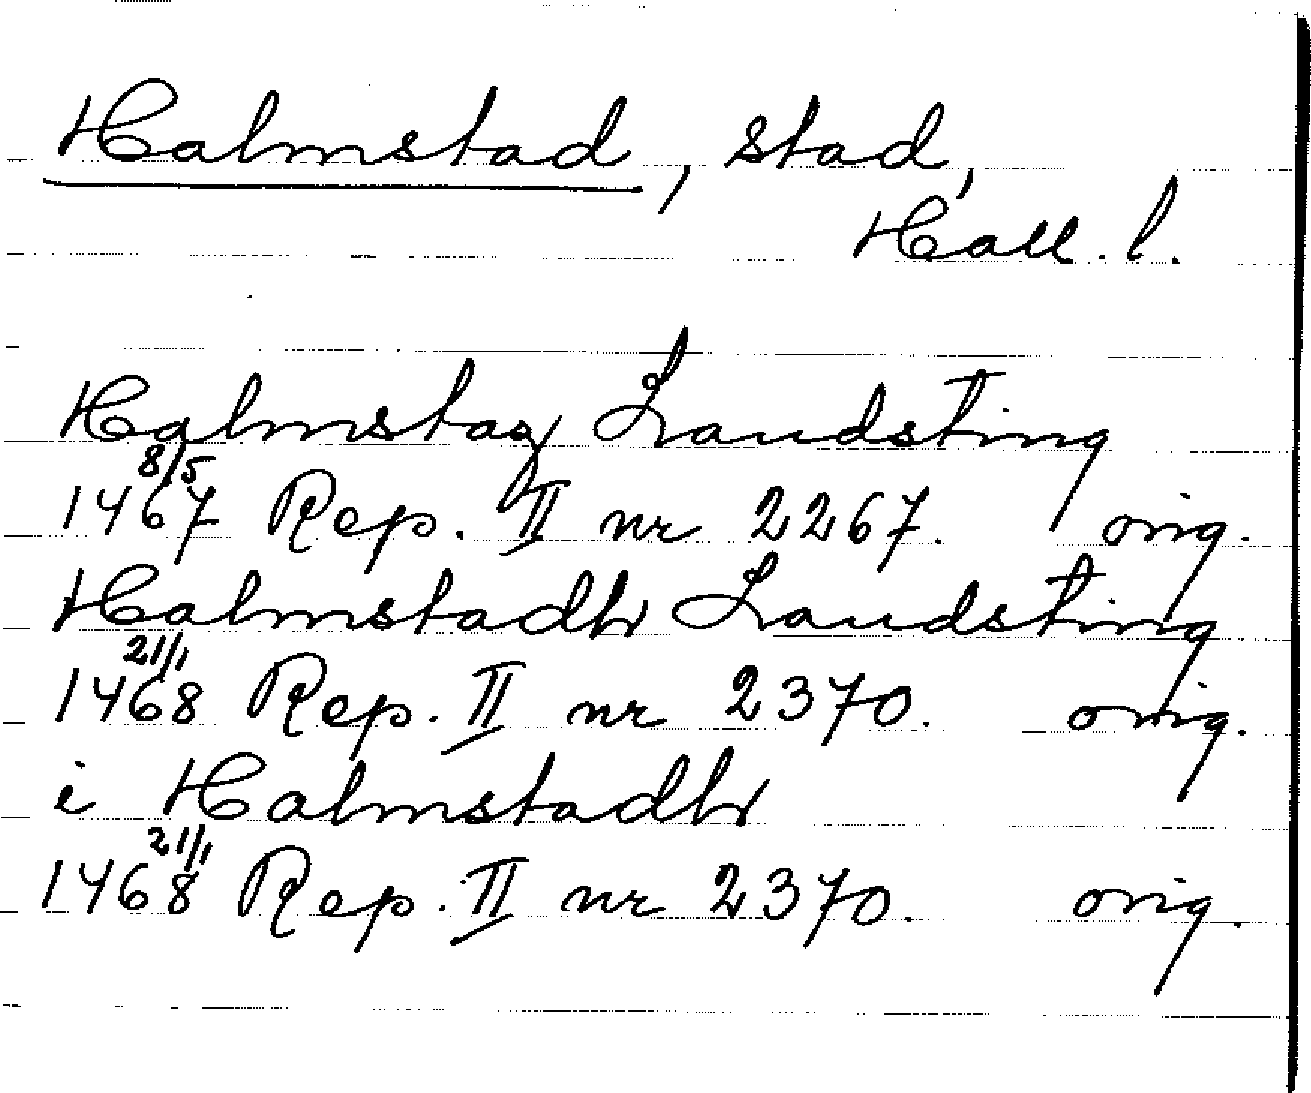 Halmstad, stad,
Hall. l.
Halmstaz Landsting
1467 8/5 Rep. II nr 2267. orig.
Halmstadhr Landsting
1468 21/1 Rep. II nr 2370. orig.
i Halmstadhr
1468 21/1 Rep. II nr 2370. orig.